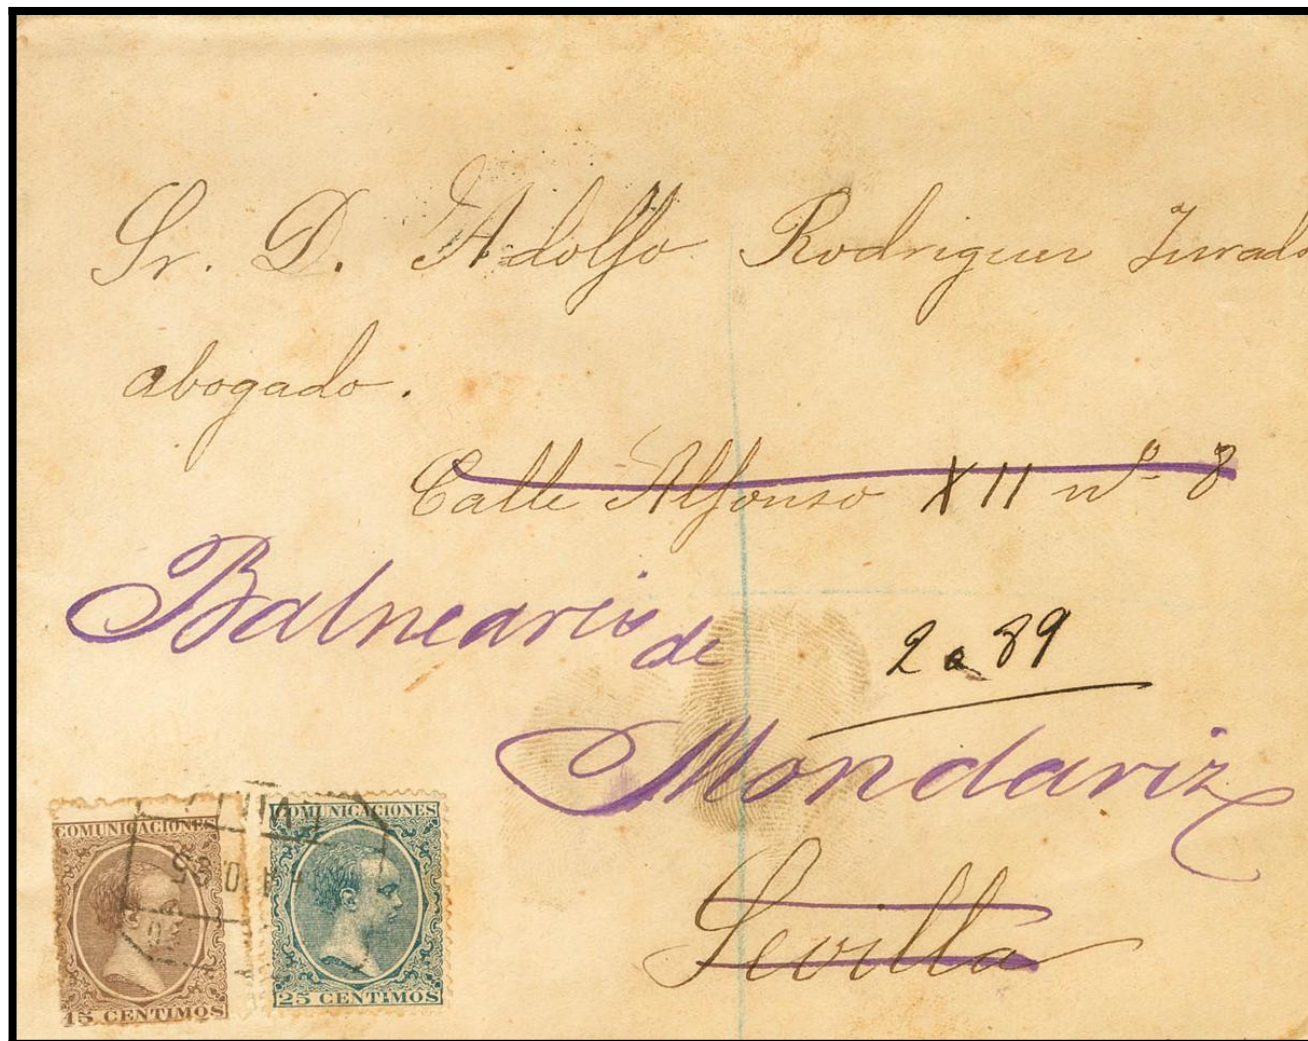 Sr. D. Adolfo Rodriguez Jurado
abogado.
Calle Alfonso XII nº 8
Balneario de
2 a 89
Mondariz
Sevilla
COMUNICACIONES
15 CENTIMOS
COMUNICACIONES
25 CENTIMOS